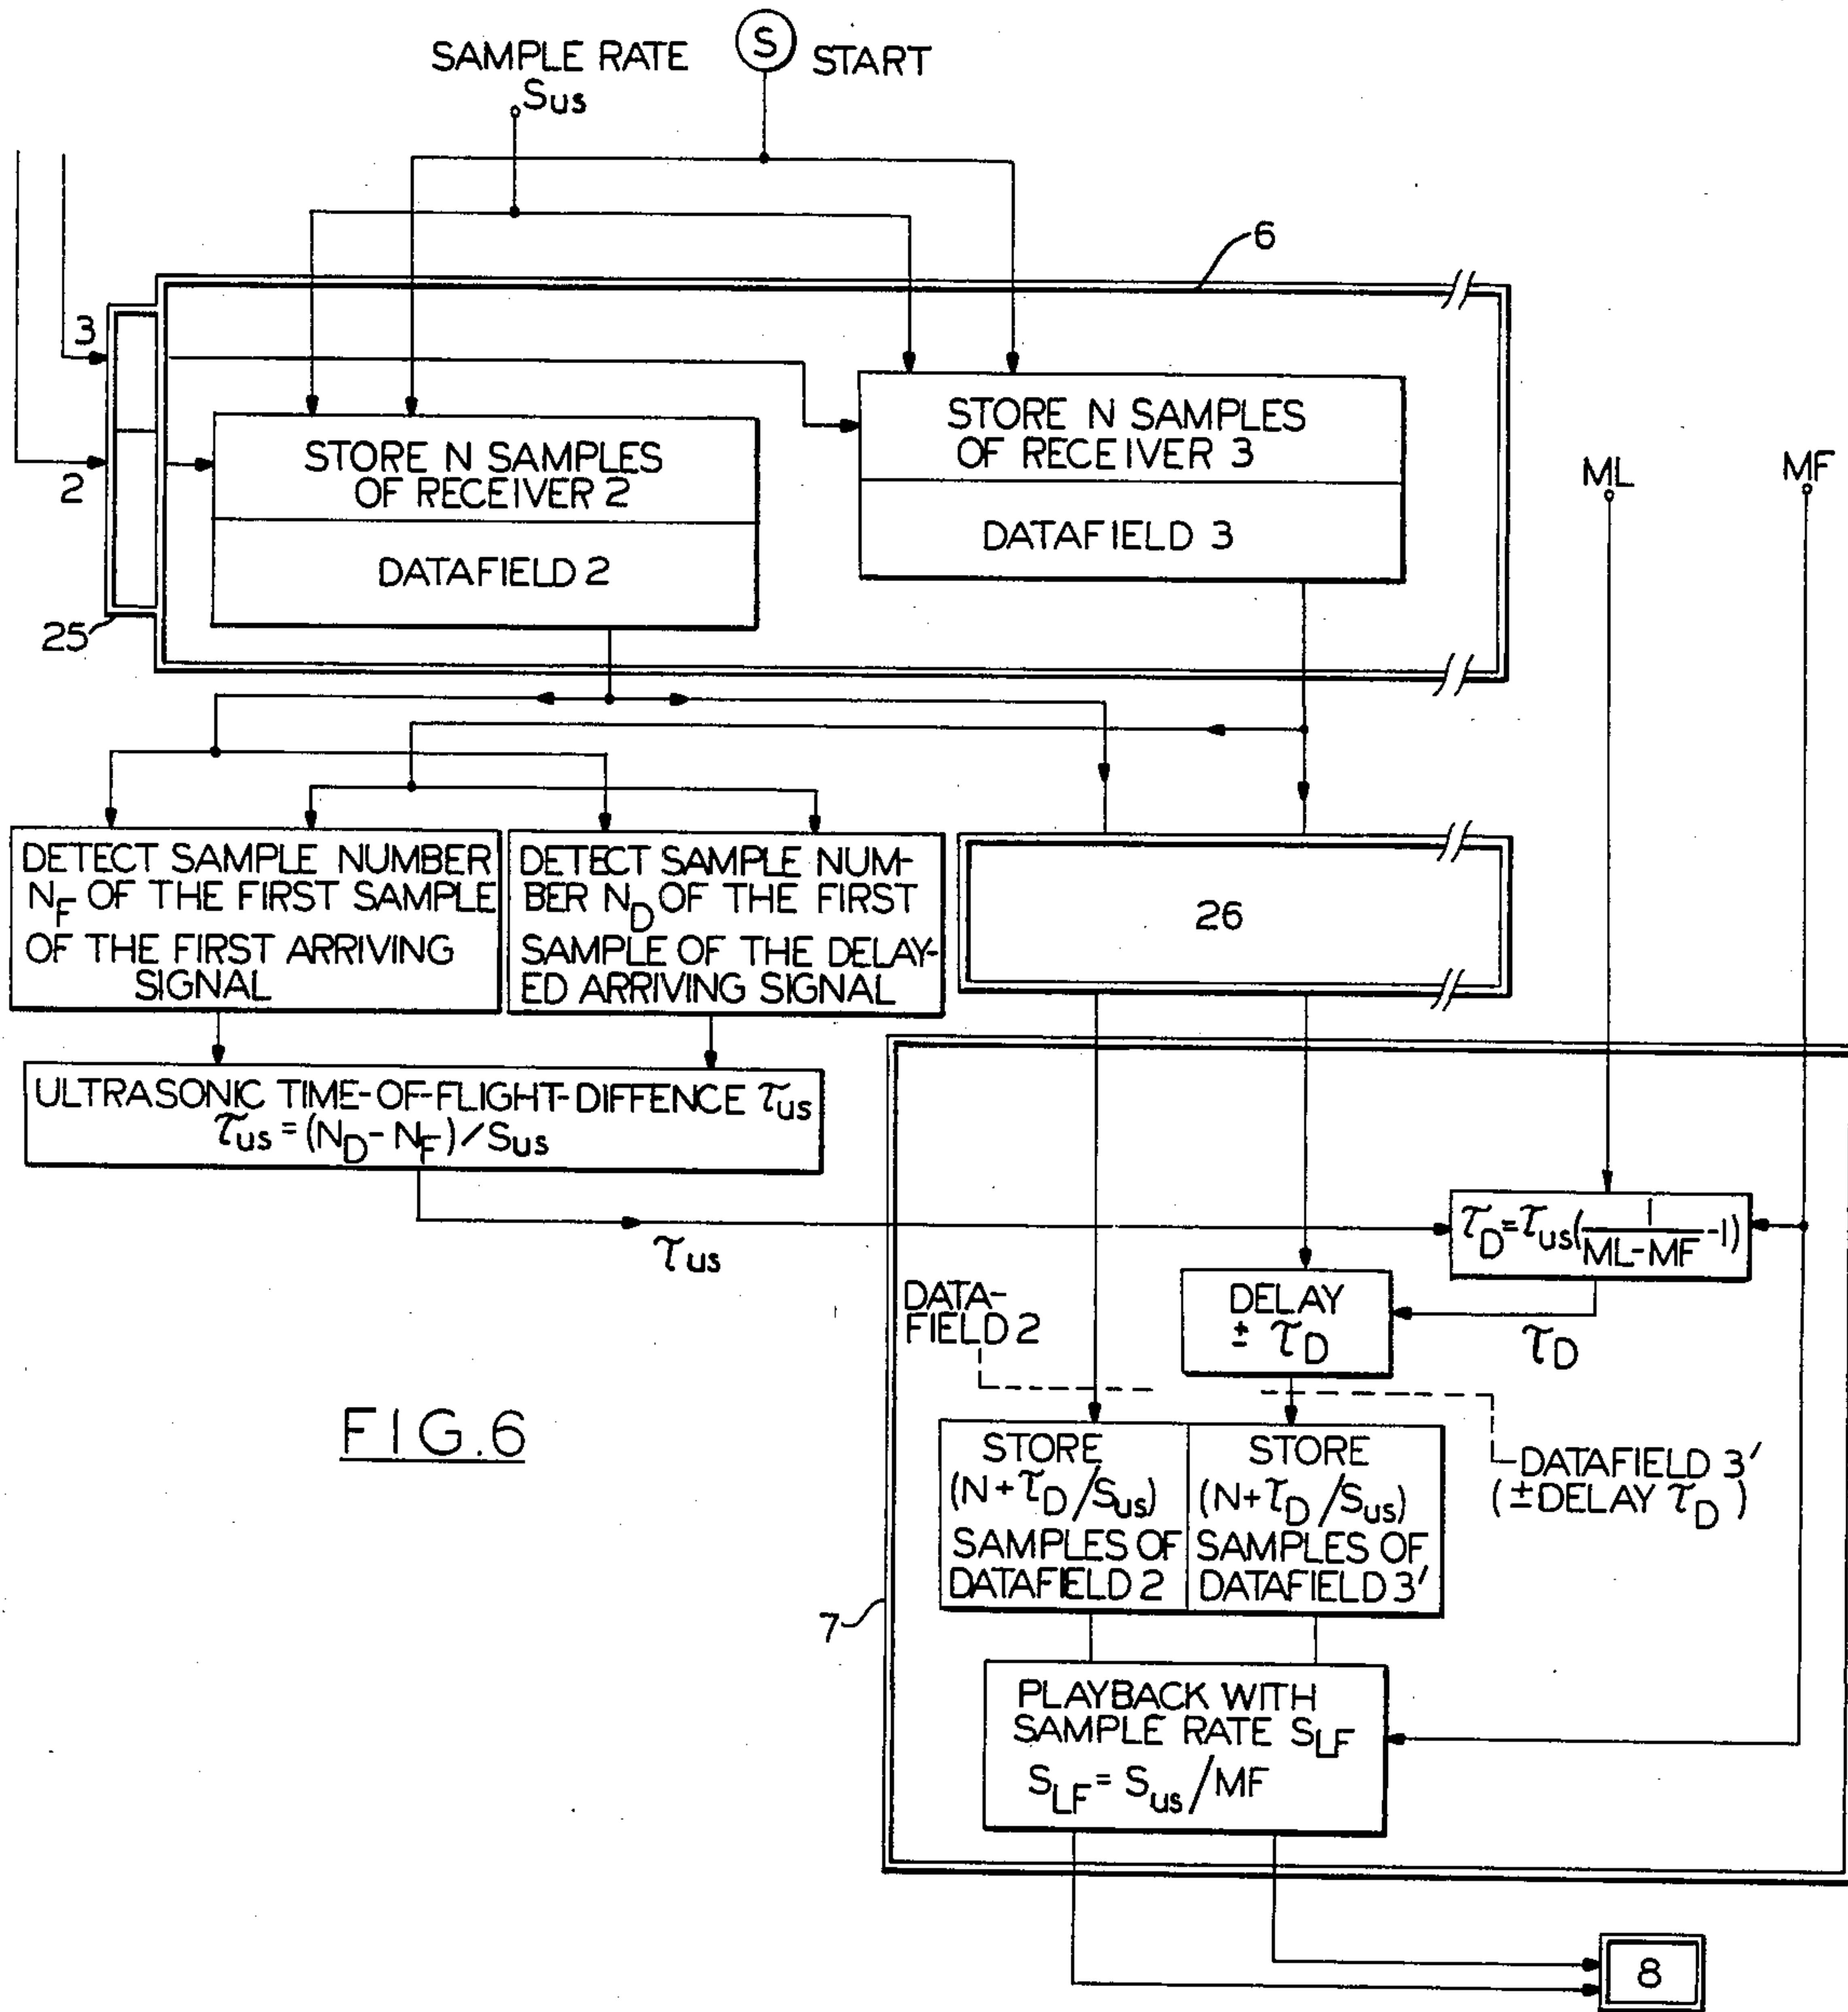 SAMPLE RATE
Sus
S START
6
3
2
25
STORE N SAMPLES
OF RECEIVER 2
DATAFIELD 2
STORE N SAMPLES
OF RECEIVER 3
DATAFIELD 3
ML
MF
DETECT SAMPLE NUMBER
N_F OF THE FIRST SAMPLE
OF THE FIRST ARRIVING
SIGNAL
DETECT SAMPLE NUM-
BER N_D OF THE FIRST
SAMPLE OF THE DELAY-
ED ARRIVING SIGNAL
26
ULTRASONIC TIME-OF-FLIGHT-DIFFENCE τus
τus = (N_D - N_F) / Sus
τus
τ_D = τus(1/ML-MF -1)
DELAY
± τ_D
τ_D
DATA-
FIELD 2
STORE
(N + τ_D / Sus)
SAMPLES OF
DATAFIELD 2
STORE
(N + τ_D / Sus)
SAMPLES OF
DATAFIELD 3'
DATAFIELD 3'
(±DELAY τ_D)
7
PLAYBACK WITH
SAMPLE RATE S_LF
S_LF = Sus / MF
8
FIG.6